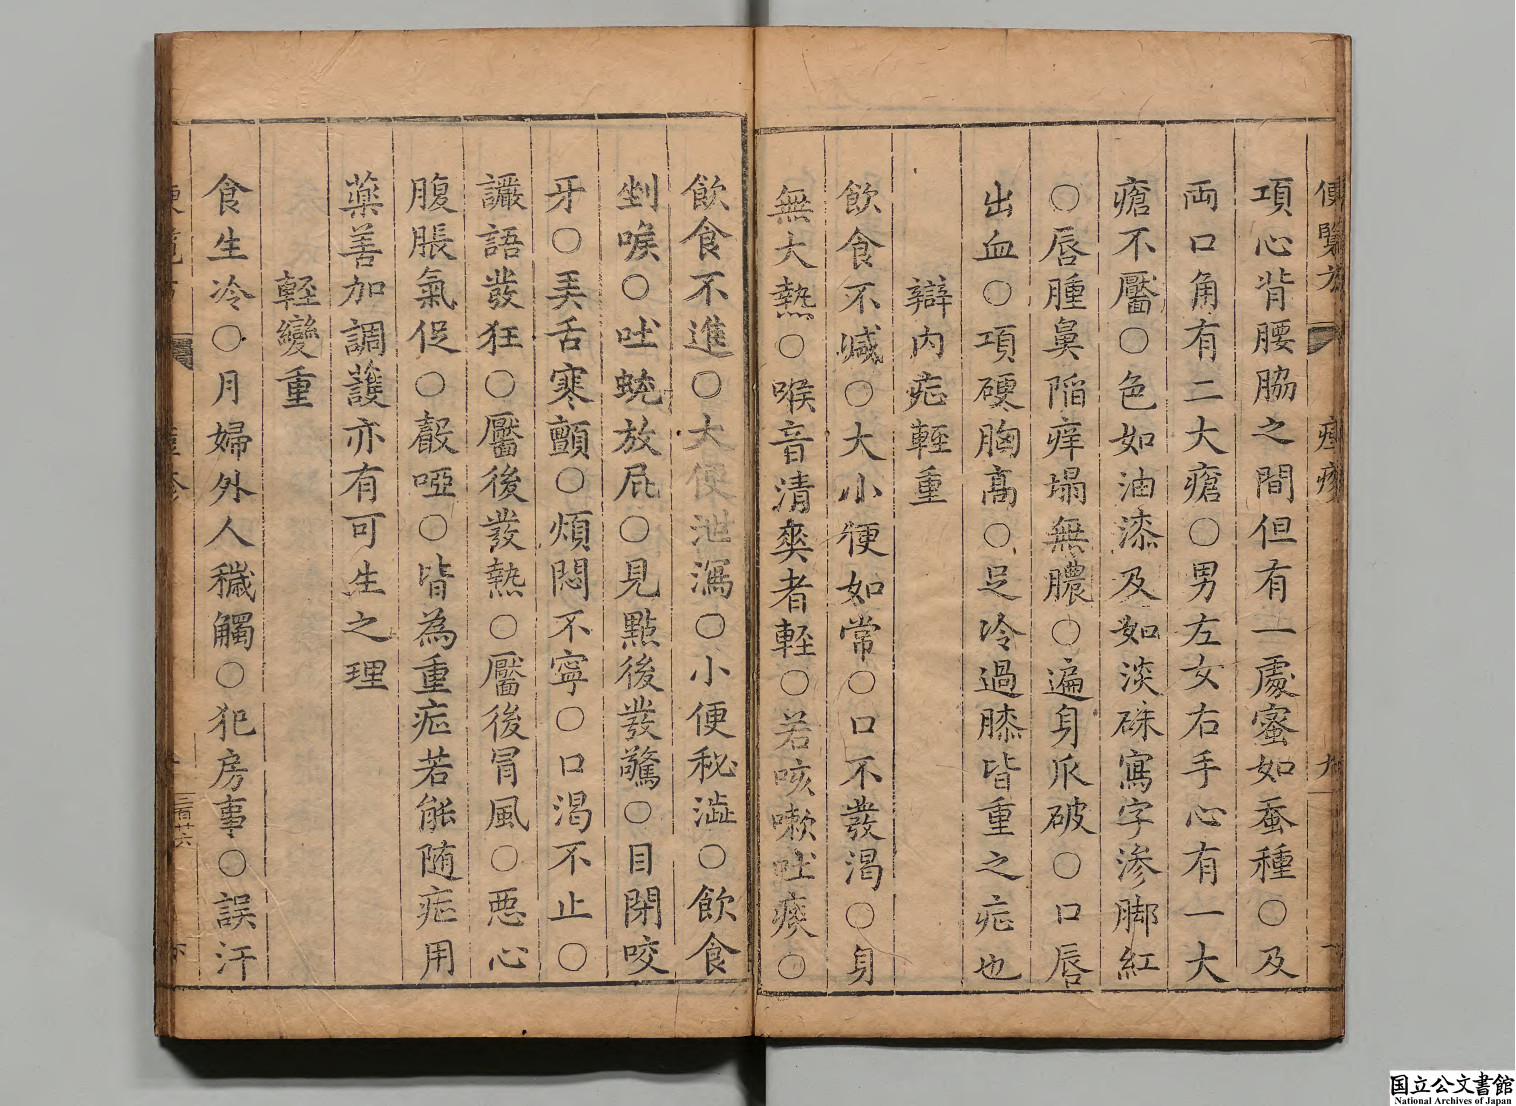 便覽方 痘疹 九
項心背腰脇之間但有一處蜜如蚕種○及
両口角有二大瘡○男左女右手心有一大
瘡不靨○色如油漆及如淡硃寫字渗脚紅
○唇腫鼻陷痒塌無膿○遍身爪破○口唇
出血○項硬胸高○足冷過膝皆重之症也
辯内症輕重
飲食不减○大小便如常○口不發渴○身
無大熱○喉音清爽者輕○若咳嗽吐痰○
飲食不進○大便泄瀉○小便秘澁○飲食
剉喉○吐蛲放屁○見點後發驚○目閉咬
牙○弄舌寒顫○煩悶不寧○口渴不止○
讝語發狂○靨後發熱○靨後冐風○惡心
腹脹氣促○聲啞○皆為重症若能随症用
藥善加調護亦有可生之理
輕變重
食生冷○月婦外人穢觸○犯房事○誤汗
二百廿六
国立公文書館
National Archives of Japan